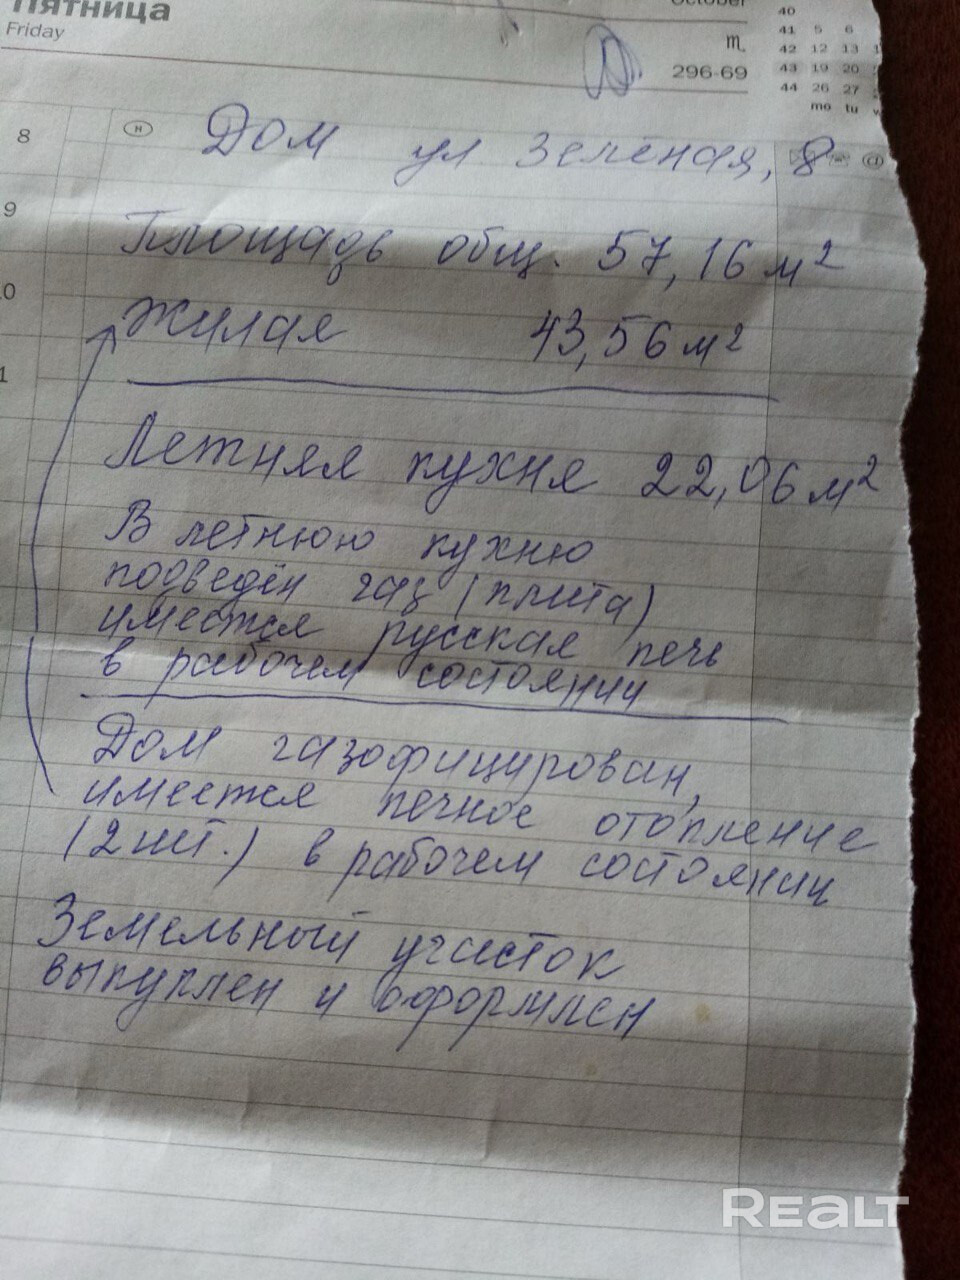 Пятница
Friday
October
♏
296-69
40
41 5 6
42 12 13 1
43 19 20
44 26 27
mo tu
8
н
Дом ул Зелёная, 8
@
9
Площадь общ. 57,16 м²
10
Жилая 43,56 м²
11
Летняя кухня 22,06 м²
В летнюю кухню
подведён газ (плита)
имеется русская печь
в рабочем состоянии
Дом газофицирован,
имеется печное отопление
(2 шт.) в рабочем состоянии
Земельный участок
выкуплен и оформлен
REALT